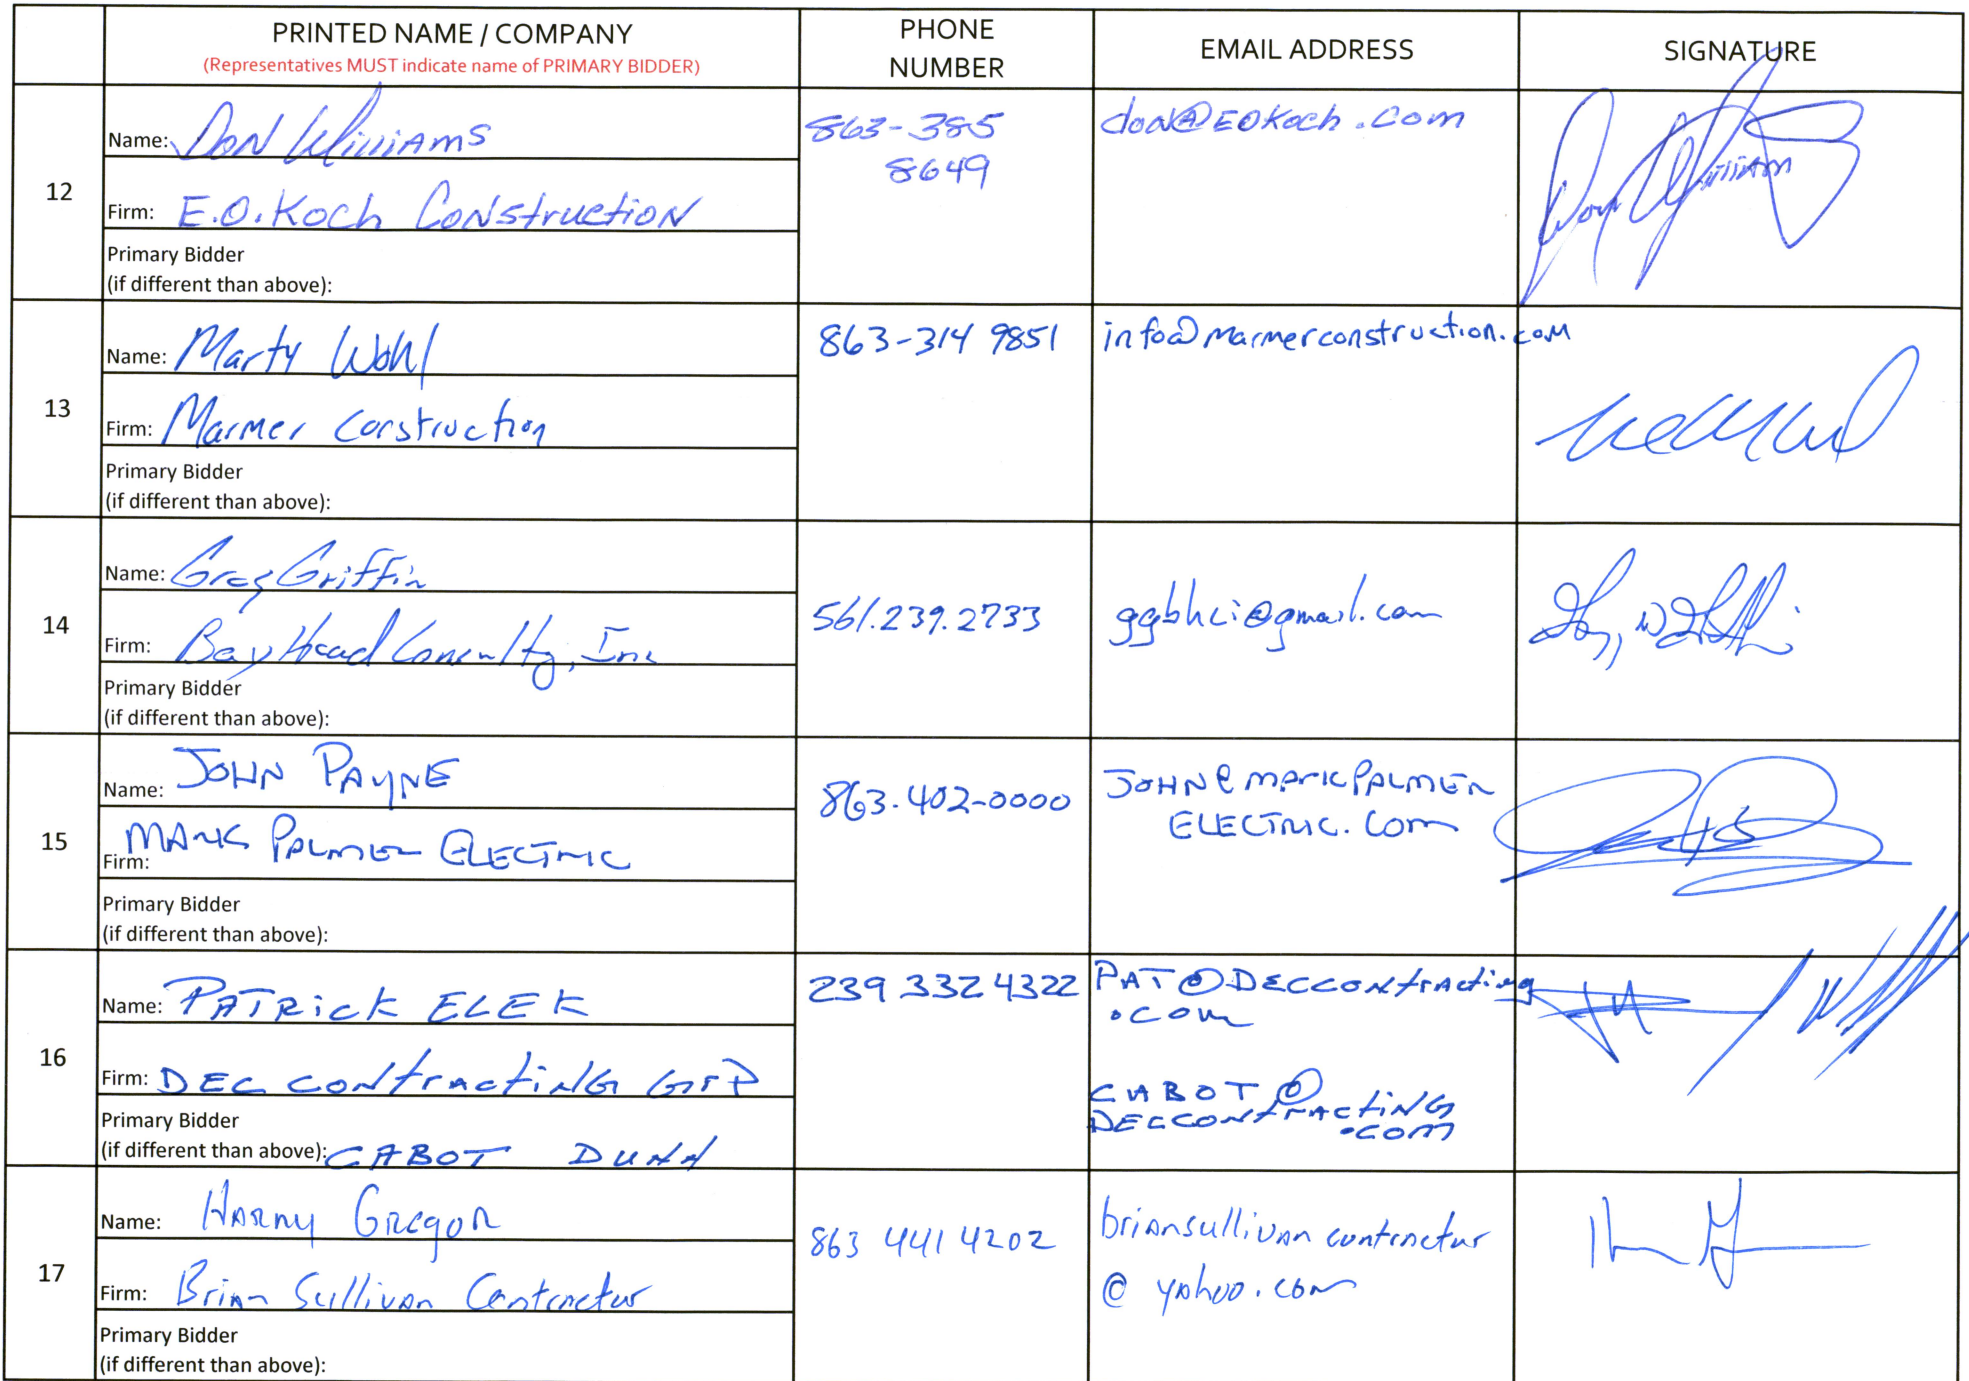 PRINTED NAME / COMPANY
(Representatives MUST indicate name of PRIMARY BIDDER)
PHONE
NUMBER
EMAIL ADDRESS
SIGNATURE
12
Name: DON Williams
Firm: E.O. Koch Construction
Primary Bidder
(if different than above):
863-385
8649
don@EOKoch.com
13
Name: Marty Wohl
Firm: Marmer Construction
Primary Bidder
(if different than above):
863-314 9851
info@marmerconstruction.com
14
Name: Greg Griffin
Firm: Bay Head Consultg, Inc
Primary Bidder
(if different than above):
561.239.2733
ggbhci@gmail.com
15
Name: JOHN PAYNE
Firm: MARK PALMER ELECTRIC
Primary Bidder
(if different than above):
863.402-0000
JOHN@MARKPALMER
ELECTRIC.COM
16
Name: PATRICK ELEK
Firm: DEC CONTRACTING GrP
Primary Bidder
(if different than above): CABOT DUNN
239 332 4322
PAT@DECCONTRACTING
.COM
CABOT@
DECCONTRACTING
.COM
17
Name: HARRY GREGOR
Firm: Brian Sullivan Contractor
Primary Bidder
(if different than above):
863 441 4202
briansullivancontractor
@yahoo.com